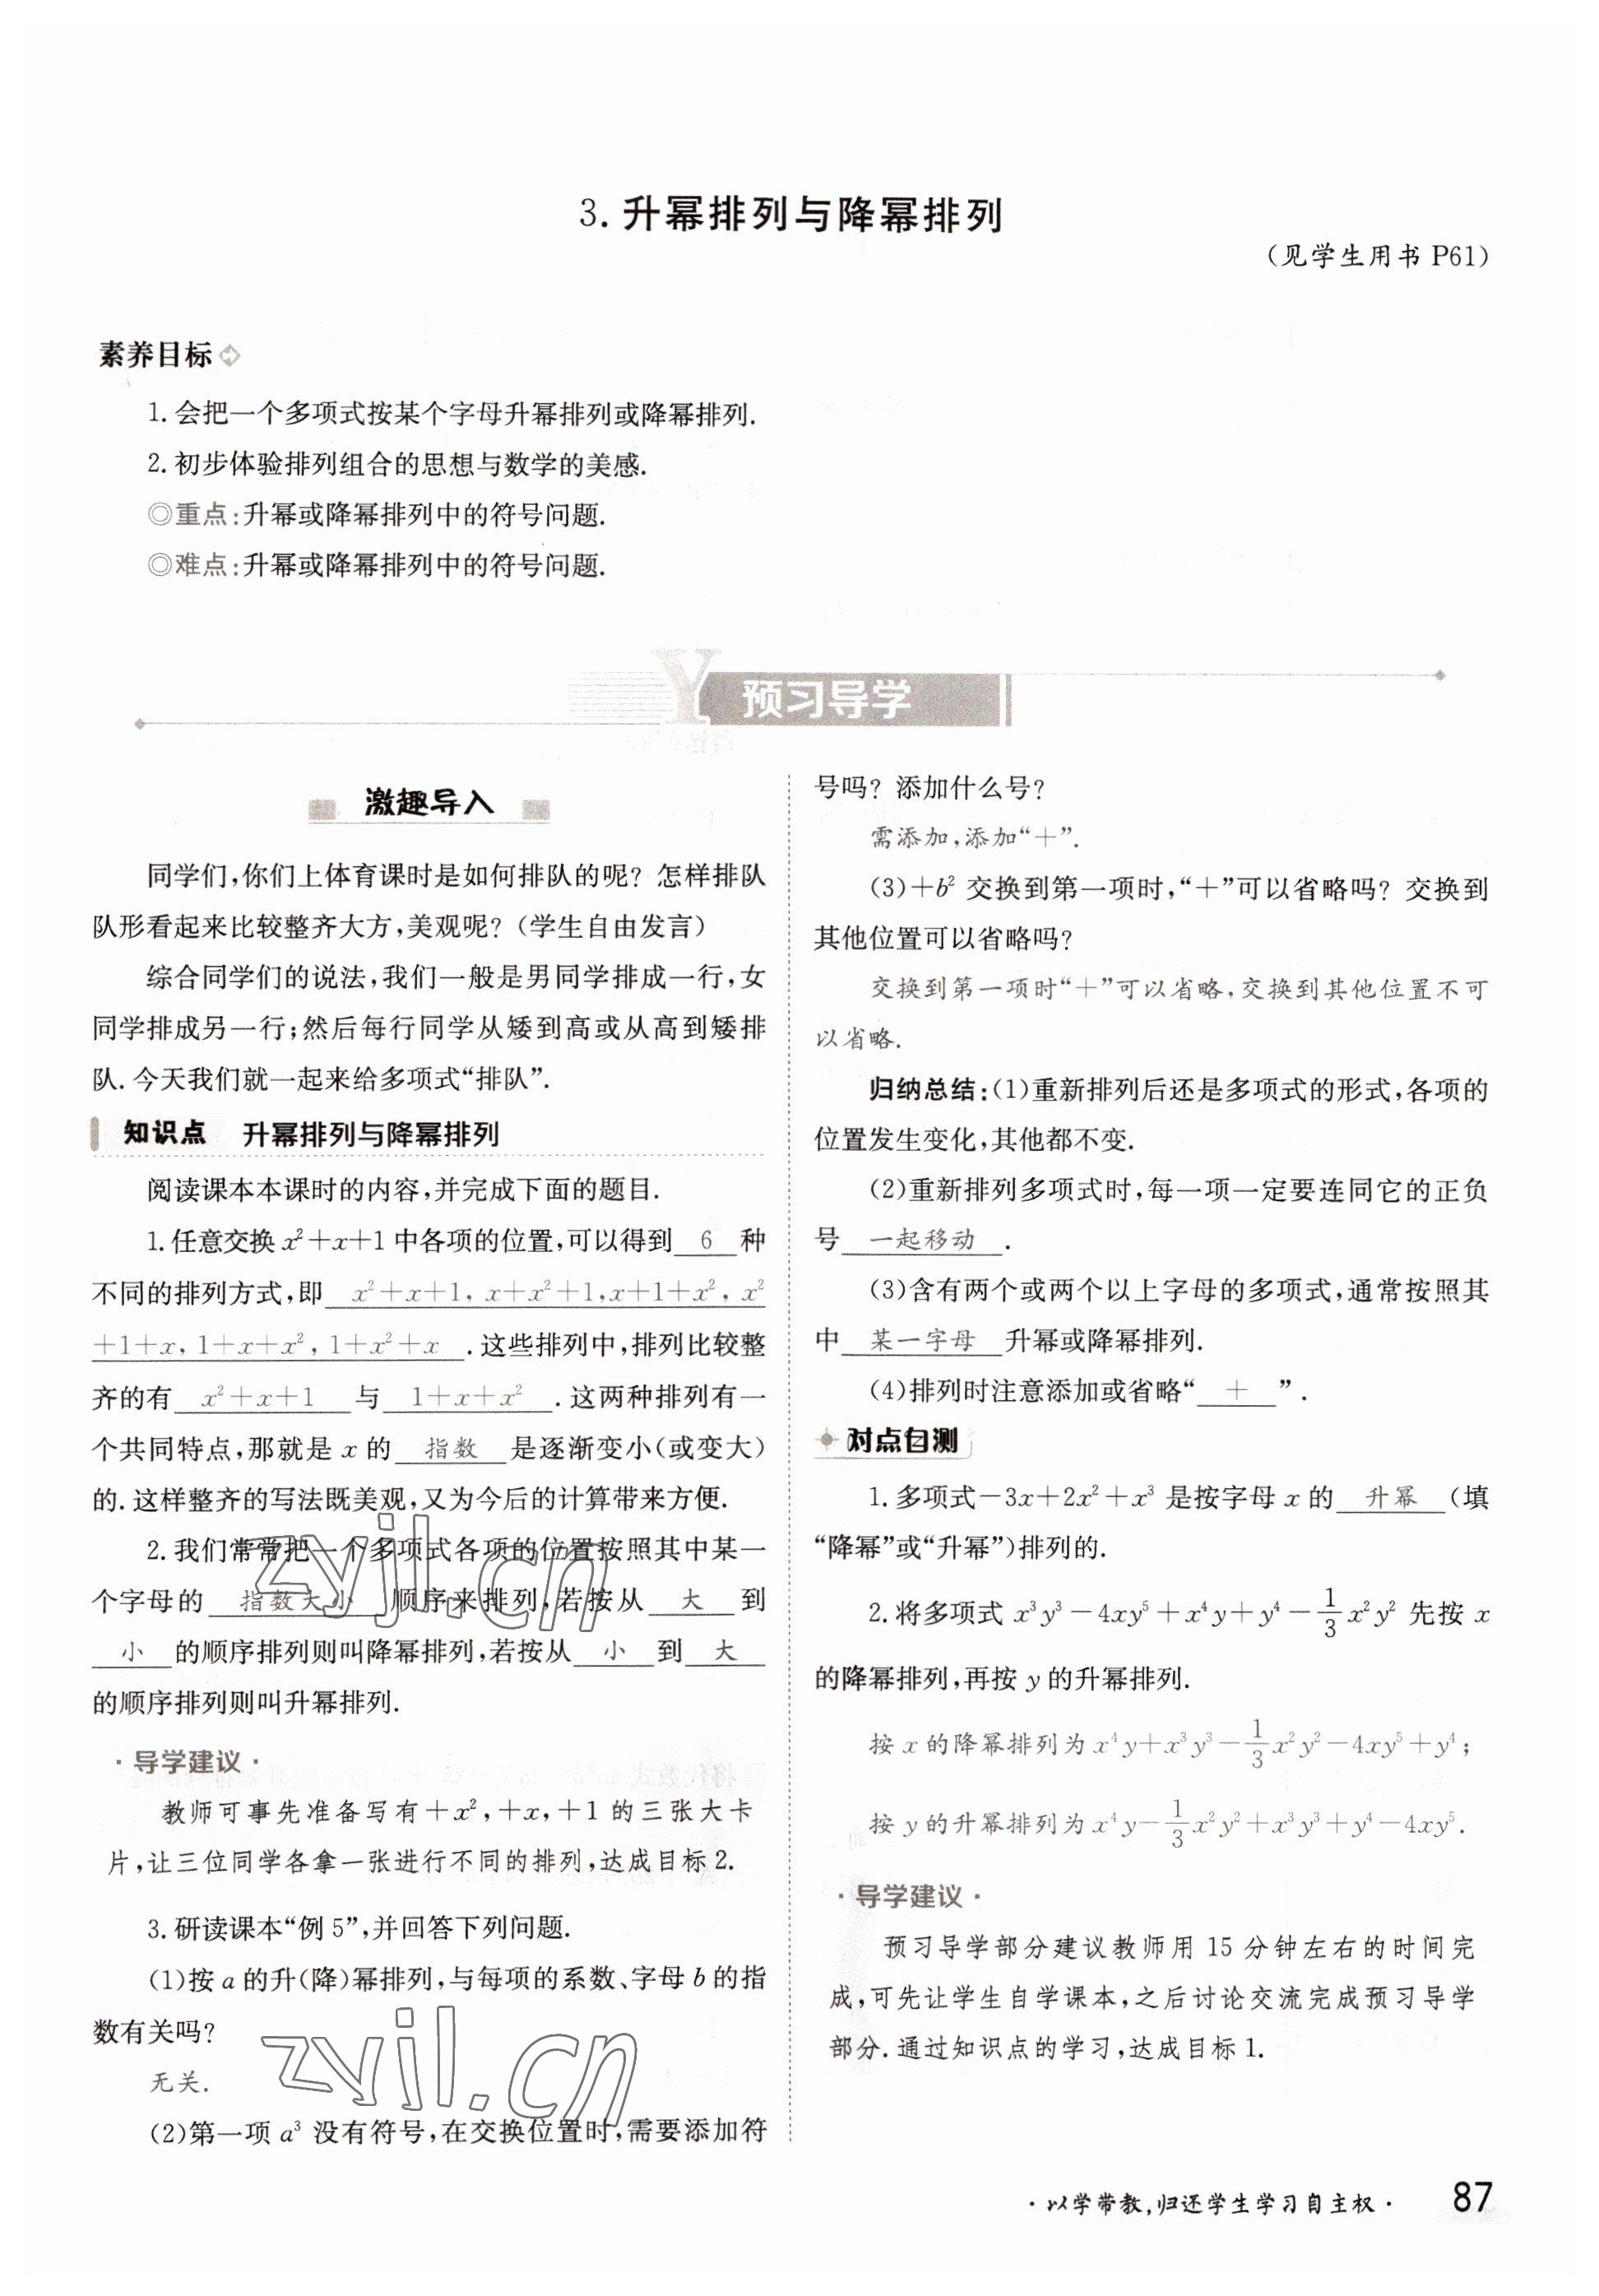 3. 升幂排列与降幂排列
(见学生用书 P61)
素养目标
1. 会把一个多项式按某个字母升幂排列或降幂排列.
2. 初步体验排列组合的思想与数学的美感.
◎重点:升幂或降幂排列中的符号问题.
◎难点:升幂或降幂排列中的符号问题.
Y 预习导学
激趣导入
同学们,你们上体育课时是如何排队的呢? 怎样排队
队形看起来比较整齐大方,美观呢? (学生自由发言)
综合同学们的说法,我们一般是男同学排成一行,女
同学排成另一行;然后每行同学从矮到高或从高到矮排
队. 今天我们就一起来给多项式“排队”.
知识点 升幂排列与降幂排列
阅读课本本课时的内容,并完成下面的题目.
1. 任意交换 x²+x+1 中各项的位置,可以得到 6 种
不同的排列方式,即 x²+x+1, x+x²+1,x+1+x², x²
+1+x, 1+x+x², 1+x²+x . 这些排列中,排列比较整
齐的有 x²+x+1 与 1+x+x² . 这两种排列有一
个共同特点,那就是 x 的 指数 是逐渐变小(或变大)
的. 这样整齐的写法既美观,又为今后的计算带来方便.
2. 我们常常把一个多项式各项的位置按照其中某一
个字母的 指数大小 顺序来排列,若按从 大 到
小 的顺序排列则叫降幂排列,若按从 小 到 大
的顺序排列则叫升幂排列.
· 导学建议 ·
教师可事先准备写有+x²,+x,+1 的三张大卡
片,让三位同学各拿一张进行不同的排列,达成目标 2.
3. 研读课本“例 5”,并回答下列问题.
(1)按 a 的升(降)幂排列,与每项的系数、字母 b 的指
数有关吗?
无关.
(2)第一项 a³ 没有符号,在交换位置时,需要添加符
号吗? 添加什么号?
需添加,添加“+”.
(3)+b² 交换到第一项时,“+”可以省略吗? 交换到
其他位置可以省略吗?
交换到第一项时“+”可以省略,交换到其他位置不可
以省略.
归纳总结:(1)重新排列后还是多项式的形式,各项的
位置发生变化,其他都不变.
(2)重新排列多项式时,每一项一定要连同它的正负
号 一起移动 .
(3)含有两个或两个以上字母的多项式,通常按照其
中 某一字母 升幂或降幂排列.
(4)排列时注意添加或省略“ + ”.
对点自测
1. 多项式-3x+2x²+x³ 是按字母 x 的 升幂 (填
“降幂”或“升幂”)排列的.
2. 将多项式 x³y³-4xy⁵+x⁴y+y⁴-1/3 x²y² 先按 x
的降幂排列,再按 y 的升幂排列.
按 x 的降幂排列为 x⁴y+x³y³-1/3 x²y²-4xy⁵+y⁴;
按 y 的升幂排列为 x⁴y-1/3 x²y²+x³y³+y⁴-4xy⁵.
· 导学建议 ·
预习导学部分建议教师用 15 分钟左右的时间完
成,可先让学生自学课本,之后讨论交流完成预习导学
部分. 通过知识点的学习,达成目标 1.
zyjl.cn
zyjl.cn
· 以学带教,归还学生学习自主权 · 87